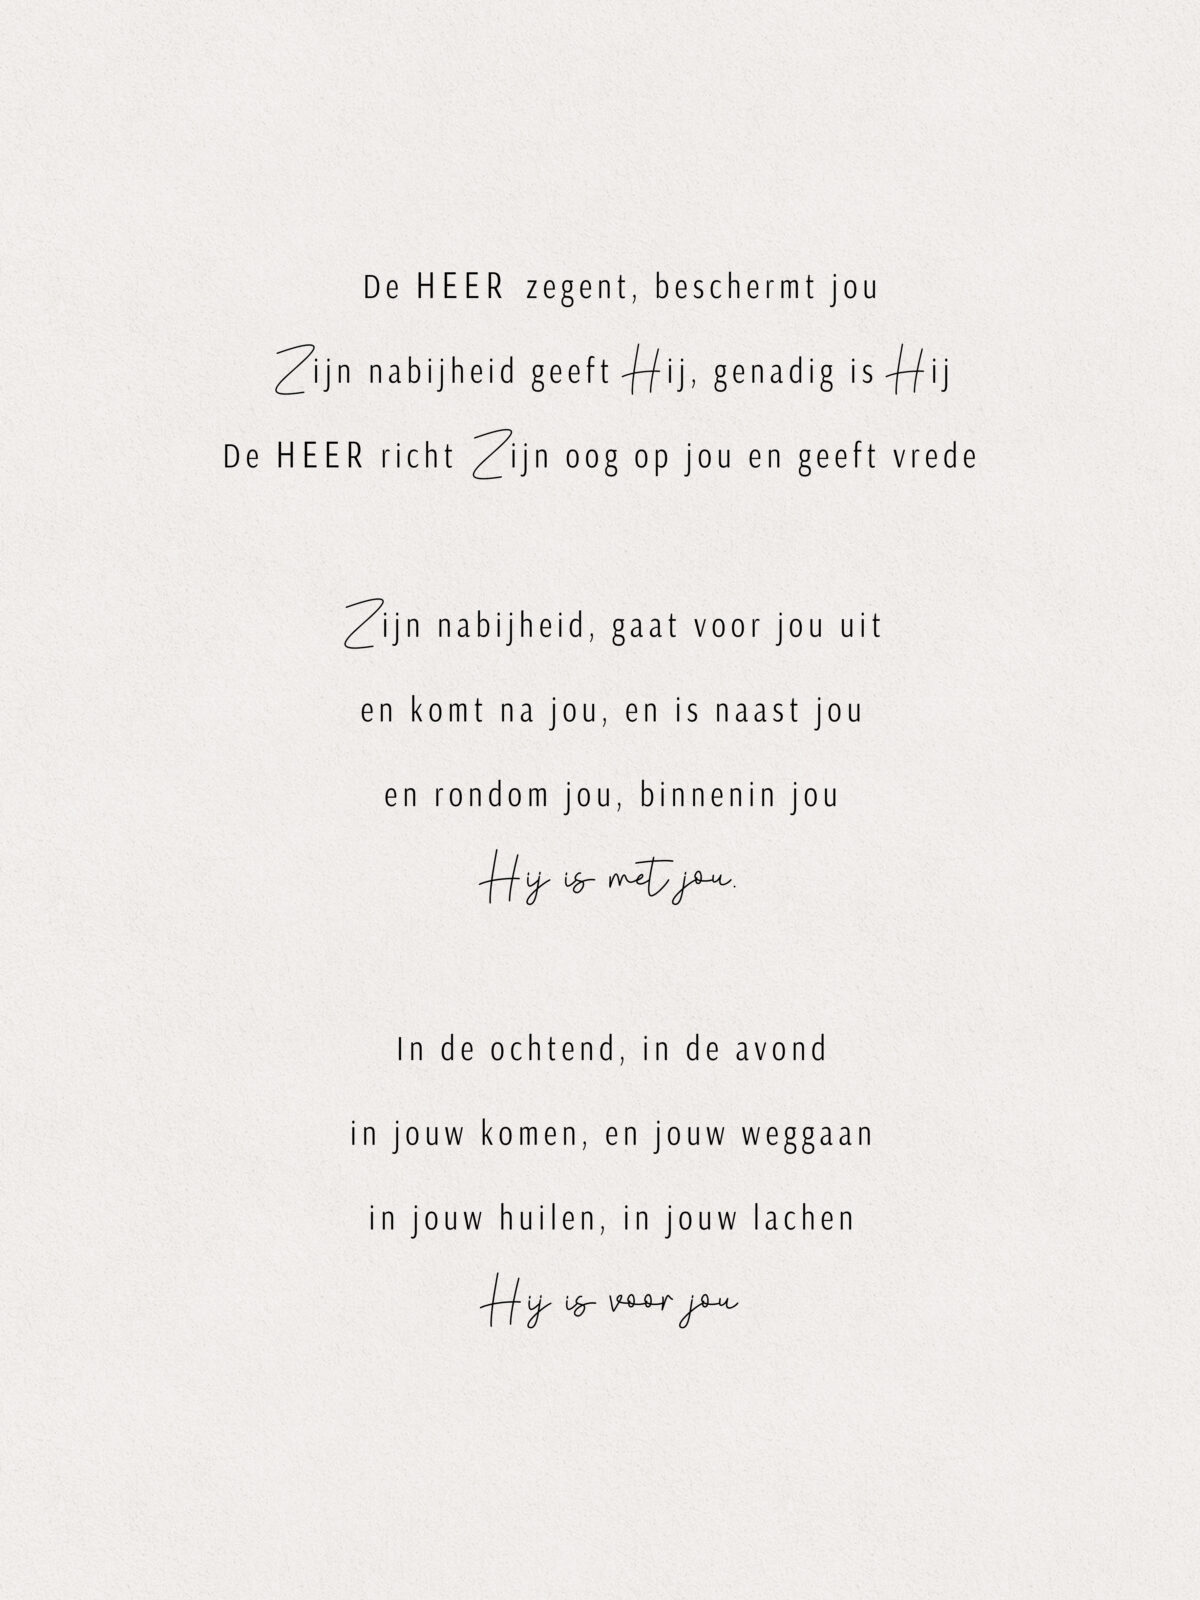 De HEER zegent, beschermt jou
Zijn nabijheid geeft Hij, genadig is Hij
De HEER richt Zijn oog op jou en geeft vrede
Zijn nabijheid, gaat voor jou uit
en komt na jou, en is naast jou
en rondom jou, binnenin jou
Hij is met jou.
In de ochtend, in de avond
in jouw komen, en jouw weggaan
in jouw huilen, in jouw lachen
Hij is voor jou